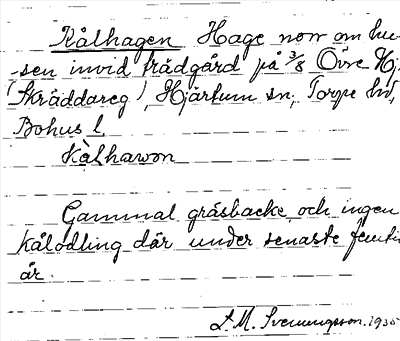 Kålhagen Hage norr om hu-
sen invid trädgård på 3/8 Övre Hj.
(Skräddareg), Hjärtum sn, Torpe hd,
Bohus l.
Kålhawon
Gammal gräsbacke och ingen
kålodling där under senaste femti
år.
L. M. Svenungsson. 1935